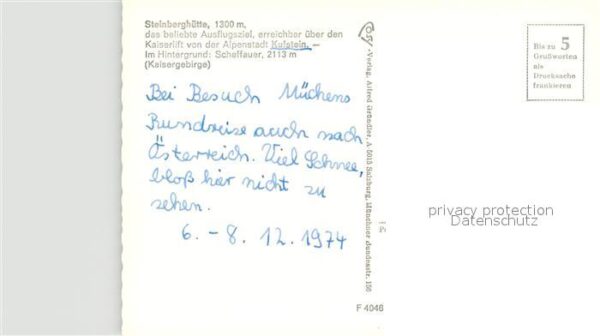 Steinberghütte, 1300 m,
das beliebte Ausflugsziel, erreichbar über den
Kaiserlift von der Alpenstadt Kufstein. —
Im Hintergrund: Scheffauer, 2113 m
(Kaisergebirge)
Bei Besuch Müchens
Rundreise auch nach
Österreich. Viel Schnee,
bloß hier nicht zu
sehen.
6. - 8. 12. 1974
Verlag Alfred Gründler, A 5015 Salzburg, Münchner Bundesstr. 156
F 4046
Bis zu 5
Grußworten
als
Drucksache
frankieren
privacy protection
Datenschutz